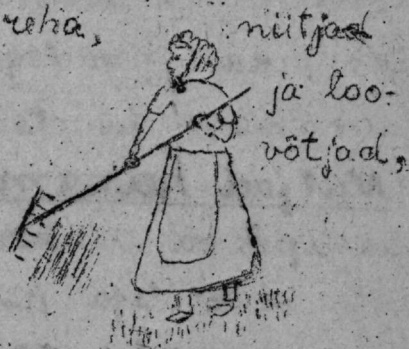 reha, niitjad
ja loo-
võtjad,